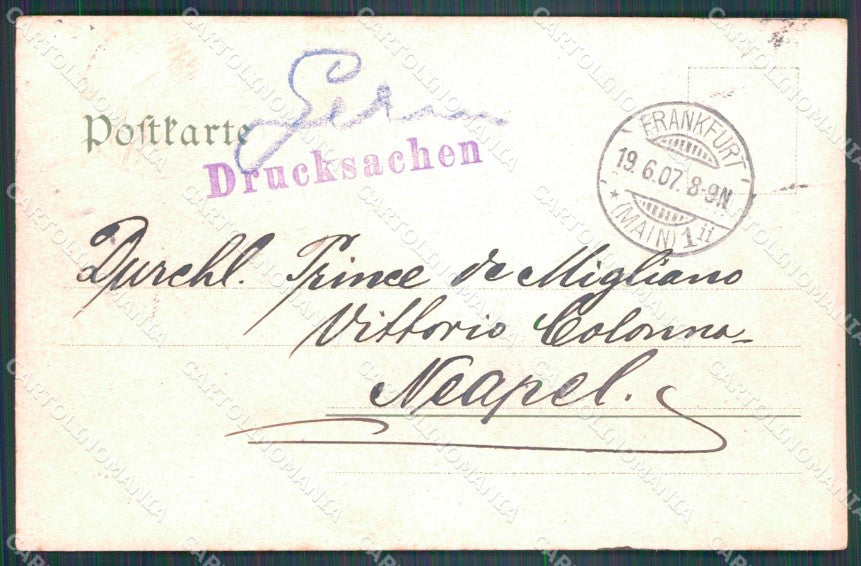 Postkarte
Drucksachen
FRANKFURT
19.6.07. 8-9N
* (MAIN) 1 ü
Durchl. Prince de Migliano
Vittorio Colonna
Neapel.
CARTOLINOMANIA